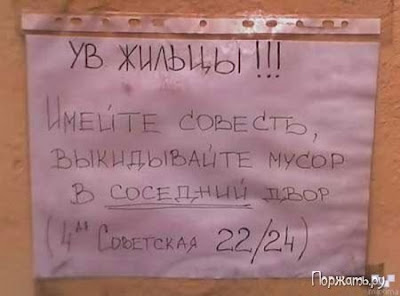 УВ ЖИЛЬЦЫ!!!
ИМЕЙТЕ СОВЕСТЬ,
ВЫКИДЫВАЙТЕ МУСОР
В СОСЕДНИЙ ДВОР
(4ая СОВЕТСКАЯ 22/24)
Поржать.ру